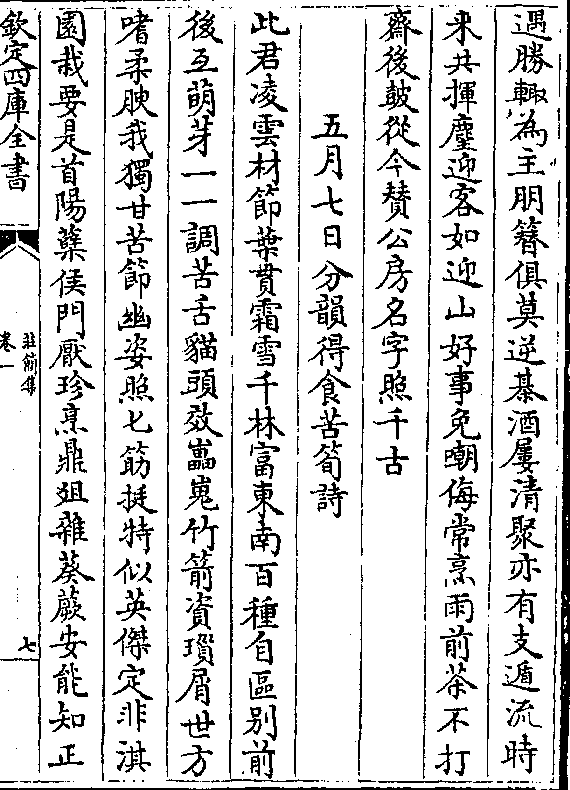 遇勝輙為主朋簪俱莫逆棊酒屢清聚亦有支遁流時
来共揮麈迎客如迎山好事免嘲侮常烹雨前茶不打
齋後鼓從今賛公房名字照千古
五月七日分韻得食苦筍詩
此君凌雲材節葉貫霜雪千林富東南百種自區别前
後互萌芽一一調苦舌貓頭效巉嵬竹箭資瑣屑世方
嗜柔腴我獨甘苦節幽姿照匕筯挺特似英傑定非淇
園栽要是首陽蘖侯門厭珍烹鼎俎雜葵蕨安能知正
欽定四庫全書
莊簡集
卷一
七